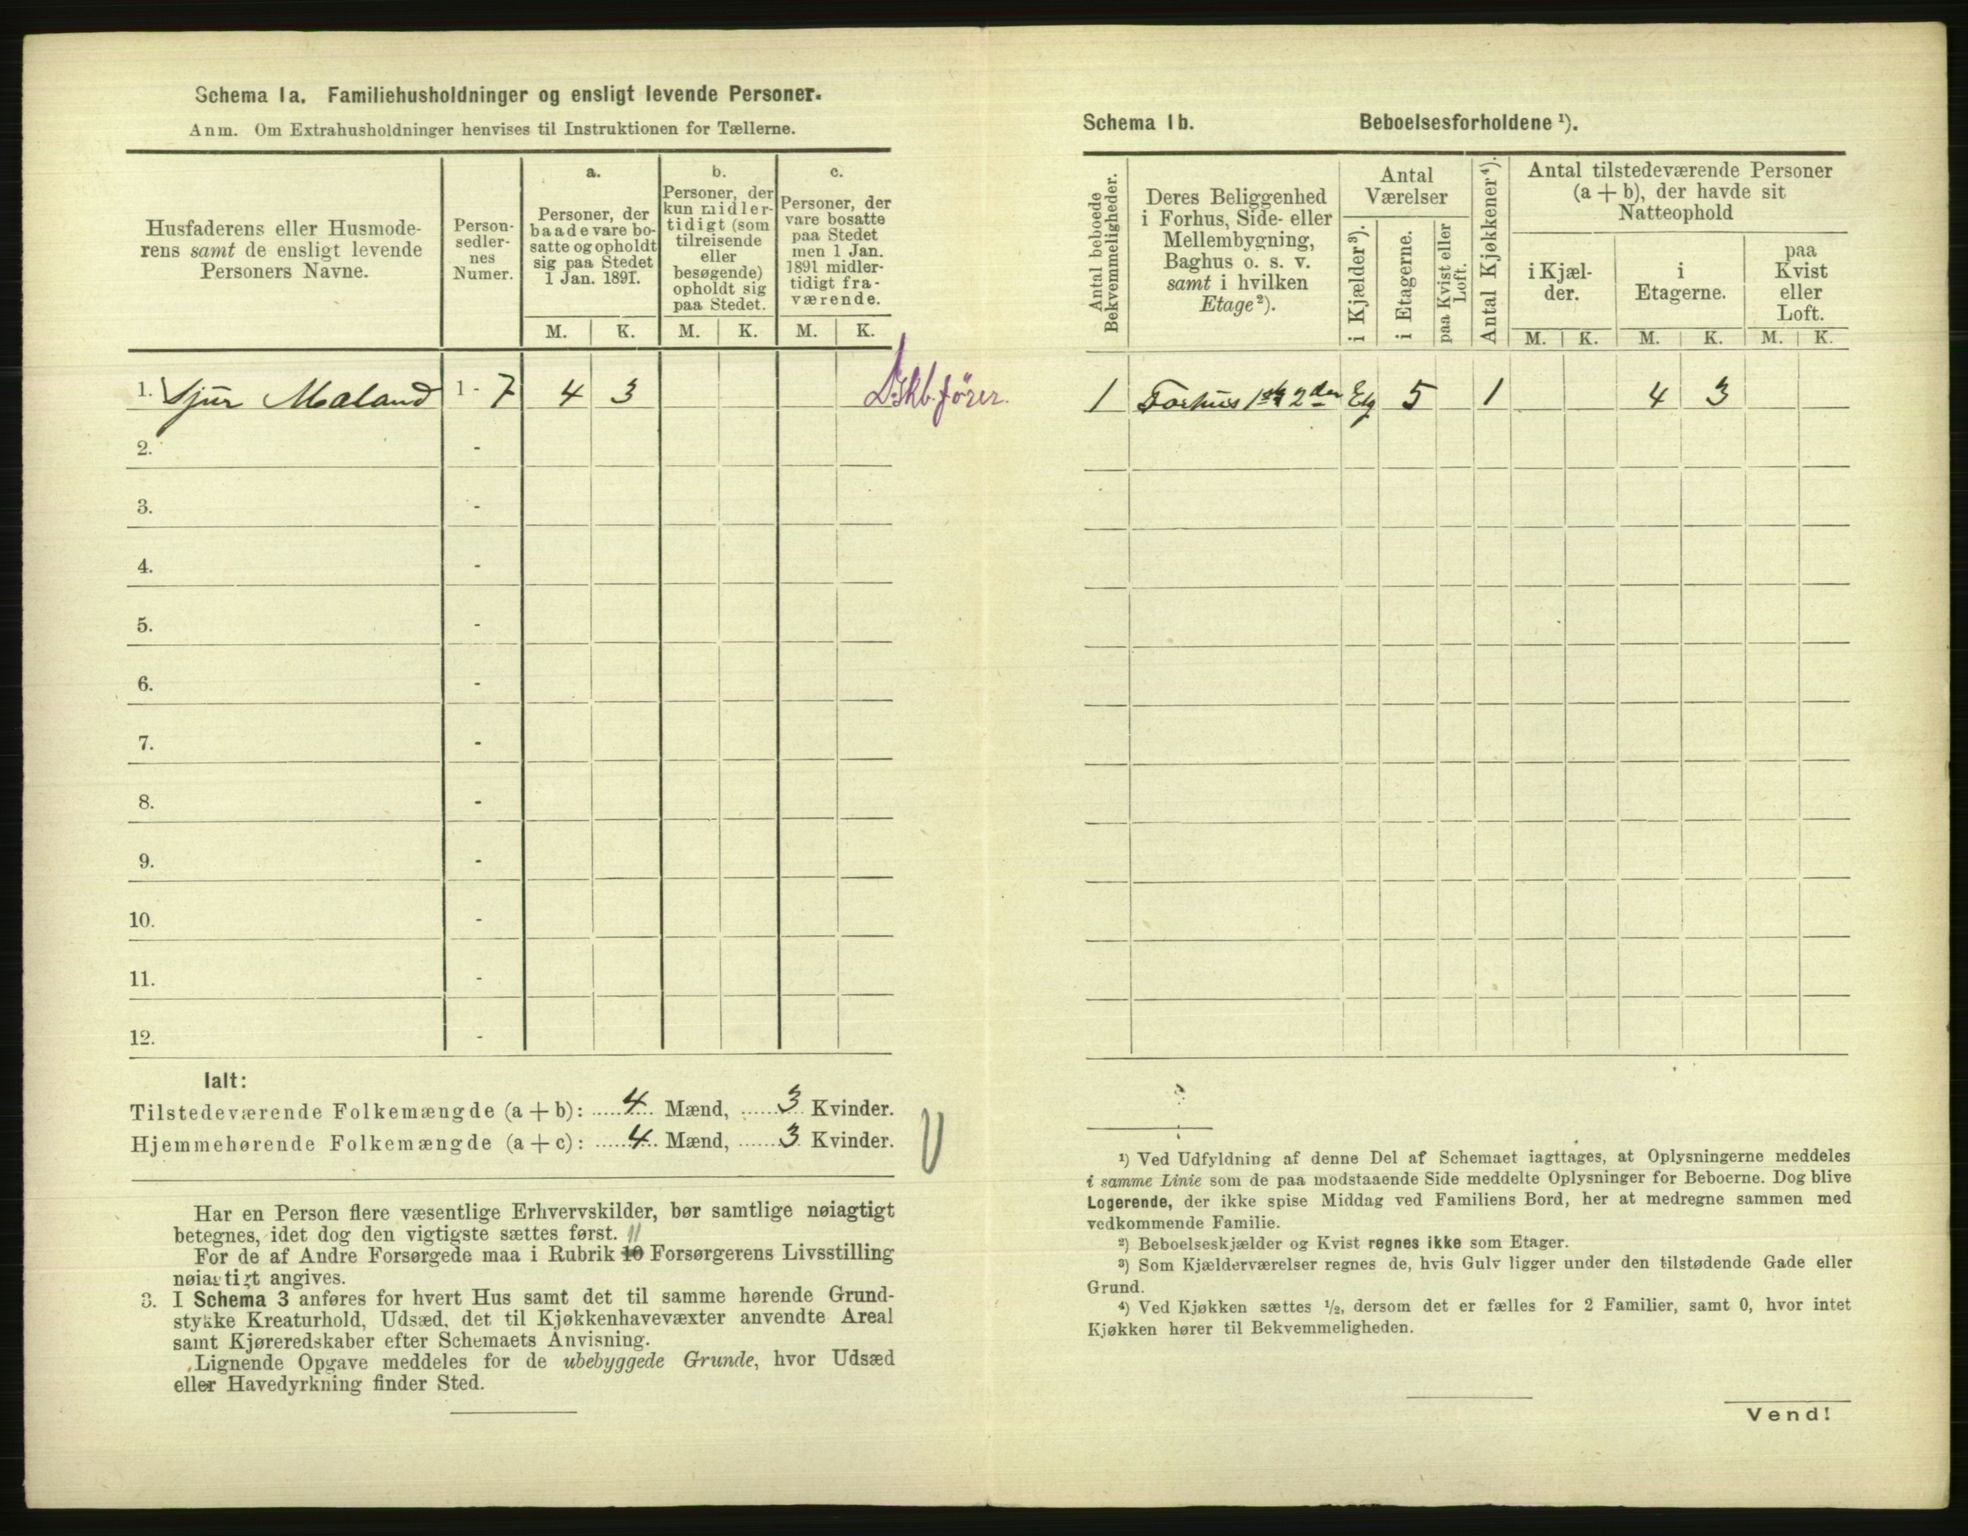 Schema 1a. Familiehusholdninger og ensligt levende Personer.
Anm. Om Extrahusholdninger henvises til Instruktionen for Tællerne.
Husfaderens eller Husmode-
rens samt de ensligt levende
Personers Navne.
Person-
sedler-
nes
Numer.
a.
Personer, der
baade vare bo-
satte og opholdt
sig paa Stedet
1 Jan. 1891.
b.
Personer, der
kun midler-
tidigt (som
tilreisende
eller
besøgende)
opholdt sig
paa Stedet.
c.
Personer, der
vare bosatte
paa Stedet
men 1 Jan.
1891 midler-
tidigt fra-
værende.
M. K. M. K. M. K.
1. Sjur Mæland 1 - 7 4 3
2. -
3. -
4. -
5. -
6. -
7. -
8. -
9. -
10. -
11. -
12. -
Ialt:
Tilstedeværende Folkemængde (a + b): 4 Mænd, 3 Kvinder.
Hjemmehørende Folkemængde (a + c): 4 Mænd, 3 Kvinder.
Har en Person flere væsentlige Erhvervskilder, bør samtlige nøiagtigt
betegnes, idet dog den vigtigste sættes først.
11
For de af Andre Forsørgede maa i Rubrik 10 Forsørgerens Livsstilling
nøiagtigt angives.
3. I Schema 3 anføres for hvert Hus samt det til samme hørende Grund-
stykke Kreaturhold, Udsæd, det til Kjøkkenhavevæxter anvendte Areal
samt Kjøreredskaber efter Schemaets Anvisning.
Lignende Opgave meddeles for de ubebyggede Grunde, hvor Udsæd
eller Havedyrkning finder Sted.
Schema 1b. Beboelsesforholdene ¹).
Antal beboede
Bekvemmeligheder.
Deres Beliggenhed
i Forhus, Side- eller
Mellembygning,
Baghus o. s. v.
samt i hvilken
Etage²).
Antal
Værelser
i Kjælder³).
i Etagerne.
paa Kvist eller
Loft.
Antal Kjøkkener⁴).
Antal tilstedeværende Personer
(a + b), der havde sit
Natteophold
i Kjæl-
der.
i
Etagerne.
paa
Kvist
eller
Loft.
M. K. M. K. M. K.
1 Forhus 1ste 2den Etg 5 1 4 3
¹) Ved Udfyldning af denne Del af Schemaet iagttages, at Oplysningerne meddeles
i samme Linie som de paa modstaaende Side meddelte Oplysninger for Beboerne. Dog blive
Logerende, der ikke spise Middag ved Familiens Bord, her at medregne sammen med
vedkommende Familie.
²) Beboelseskjælder og Kvist regnes ikke som Etager.
³) Som Kjælderværelser regnes de, hvis Gulv ligger under den tilstødende Gade eller
Grund.
⁴) Ved Kjøkken sættes ½, dersom det er fælles for 2 Familier, samt 0, hvor intet
Kjøkken hører til Bekvemmeligheden.
Vend!